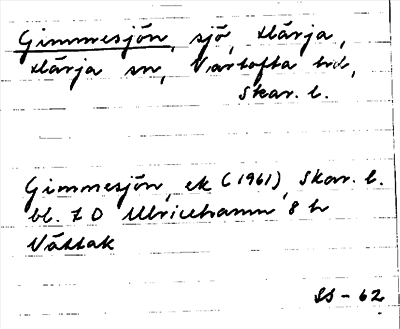 Gimmesjön, sjö, Härja,
Härja sn, Vartofta hd,
Skar. l.
Gimmesjön, ek (1961), Skar. l.
bl. 7 D Ulricehamn 8 h
Vättak
SS-62